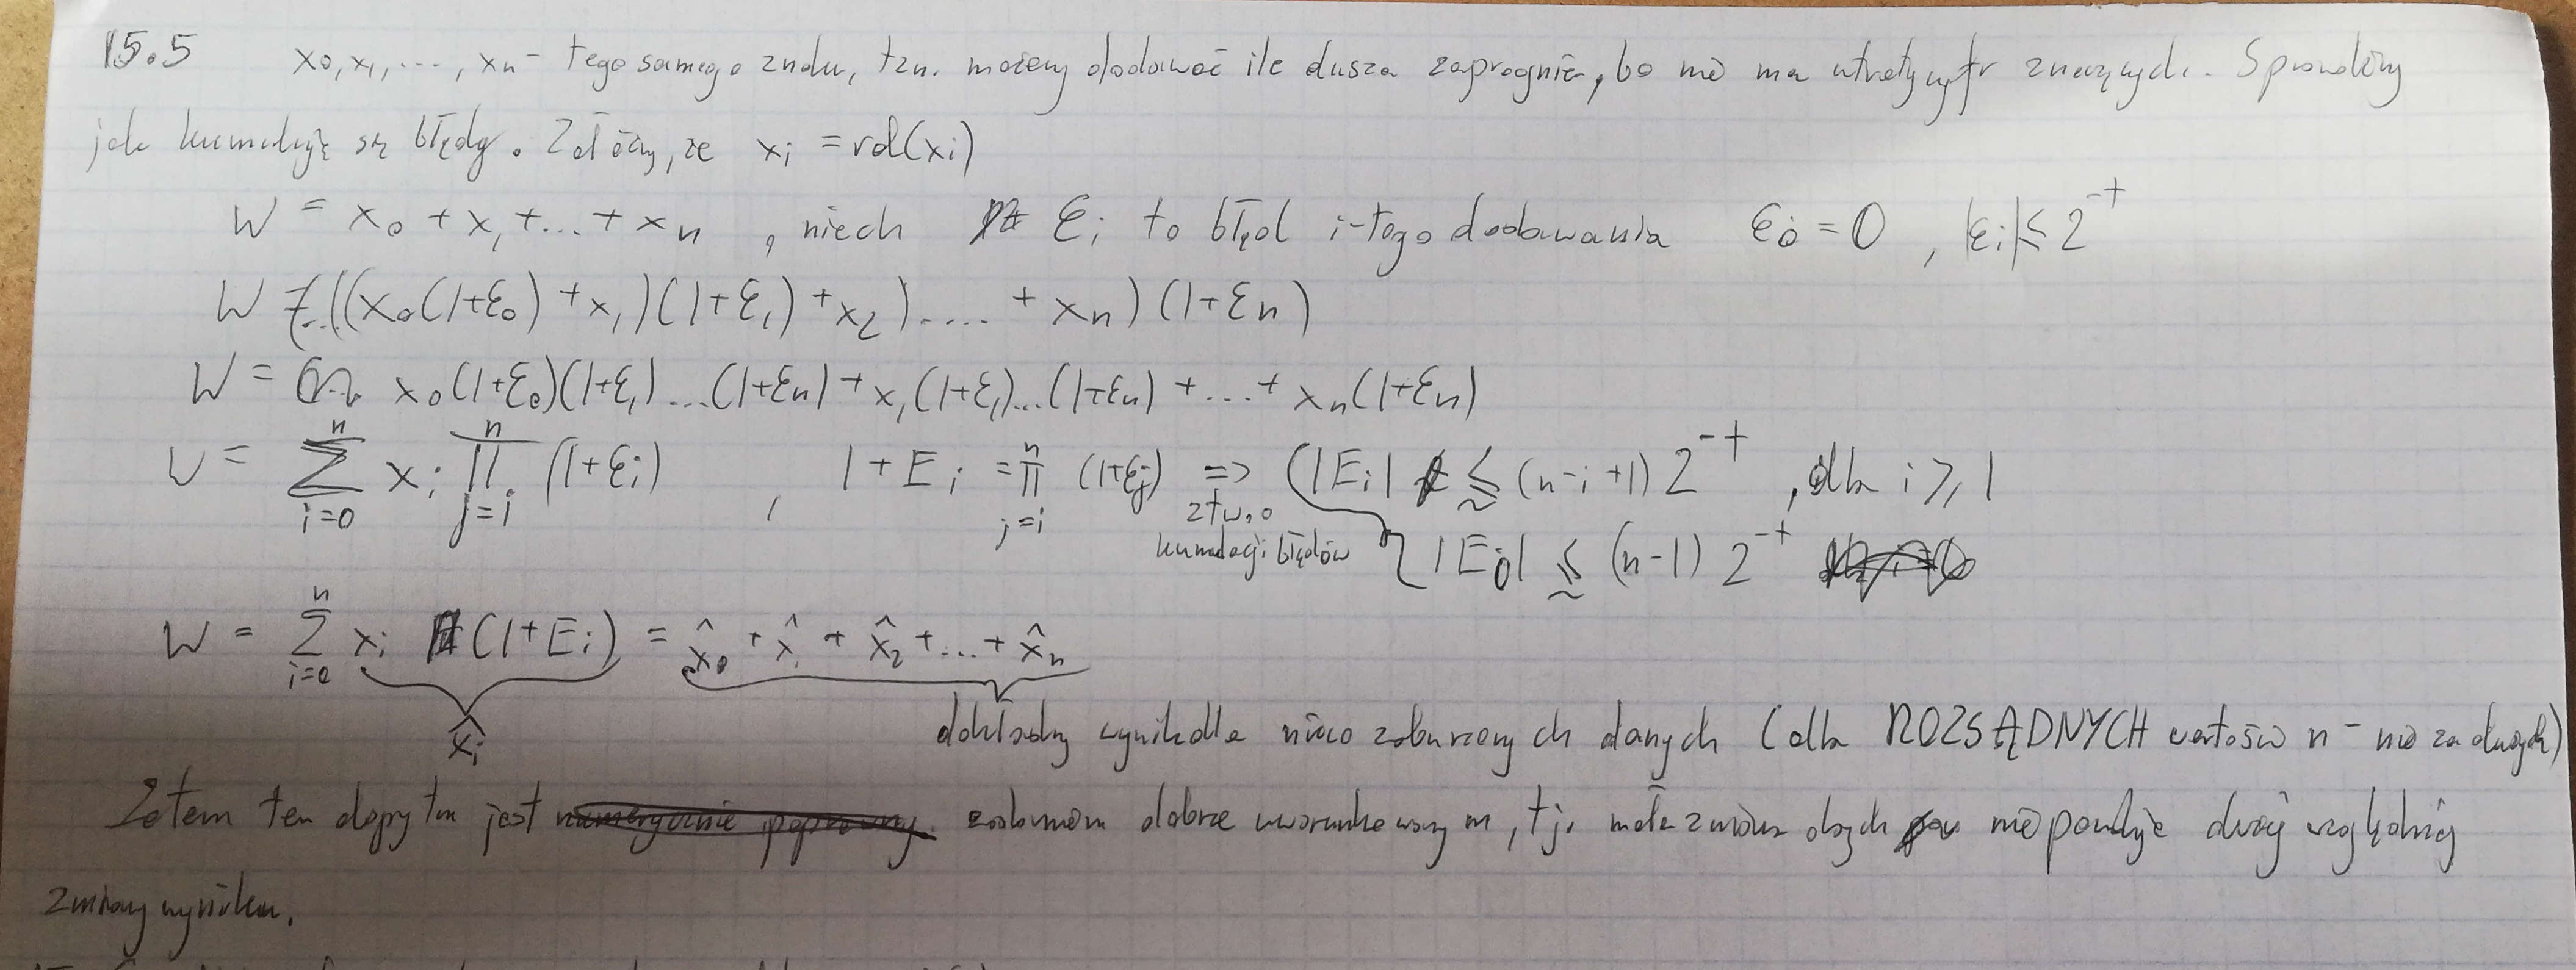 15.5 x₀, x₁, ..., xₙ - tego samego znaku, tzn. możemy dodawać ile dusza zapragnie, bo nie ma utraty cyfr znaczących. Sprawdźmy
jak kumulują się błędy. Załóżmy, że xᵢ = rd(xᵢ)
W = x₀ + x₁ + ... + xₙ , niech εᵢ to błąd i-tego dodawania ε₀ = 0 , |εᵢ| ≤ 2⁻ᵗ
W = (...((x₀(1+ε₀) + x₁)(1+ε₁) + x₂) .... + xₙ)(1+εₙ)
W = x₀(1+ε₀)(1+ε₁)...(1+εₙ) + x₁(1+ε₁)...(1+εₙ) + ... + xₙ(1+εₙ)
W = Σ_{i=0}^{n} xᵢ Π_{j=i}^{n} (1+εⱼ) , 1 + Eᵢ = Π_{j=i}^{n} (1+εⱼ) ⇒ { |Eᵢ| ≲ (n-i+1) 2⁻ᵗ , dla i ≥ 1
z tw. o kumulacji błędów |E₀| ≲ (n-1) 2⁻ᵗ
W = Σ_{i=0}^{n} xᵢ (1+Eᵢ) = x̂₀ + x̂₁ + x̂₂ + ... + x̂ₙ
x̂ᵢ dokładny wynik dla nieco zaburzonych danych (dla ROZSĄDNYCH wartości n - nie za dużych)
Zatem ten dopytka jest zadaniem dobrze uwarunkowanym, tj. mała zmiana danych nie powoduje dużej względnej
zmiany wyniku.